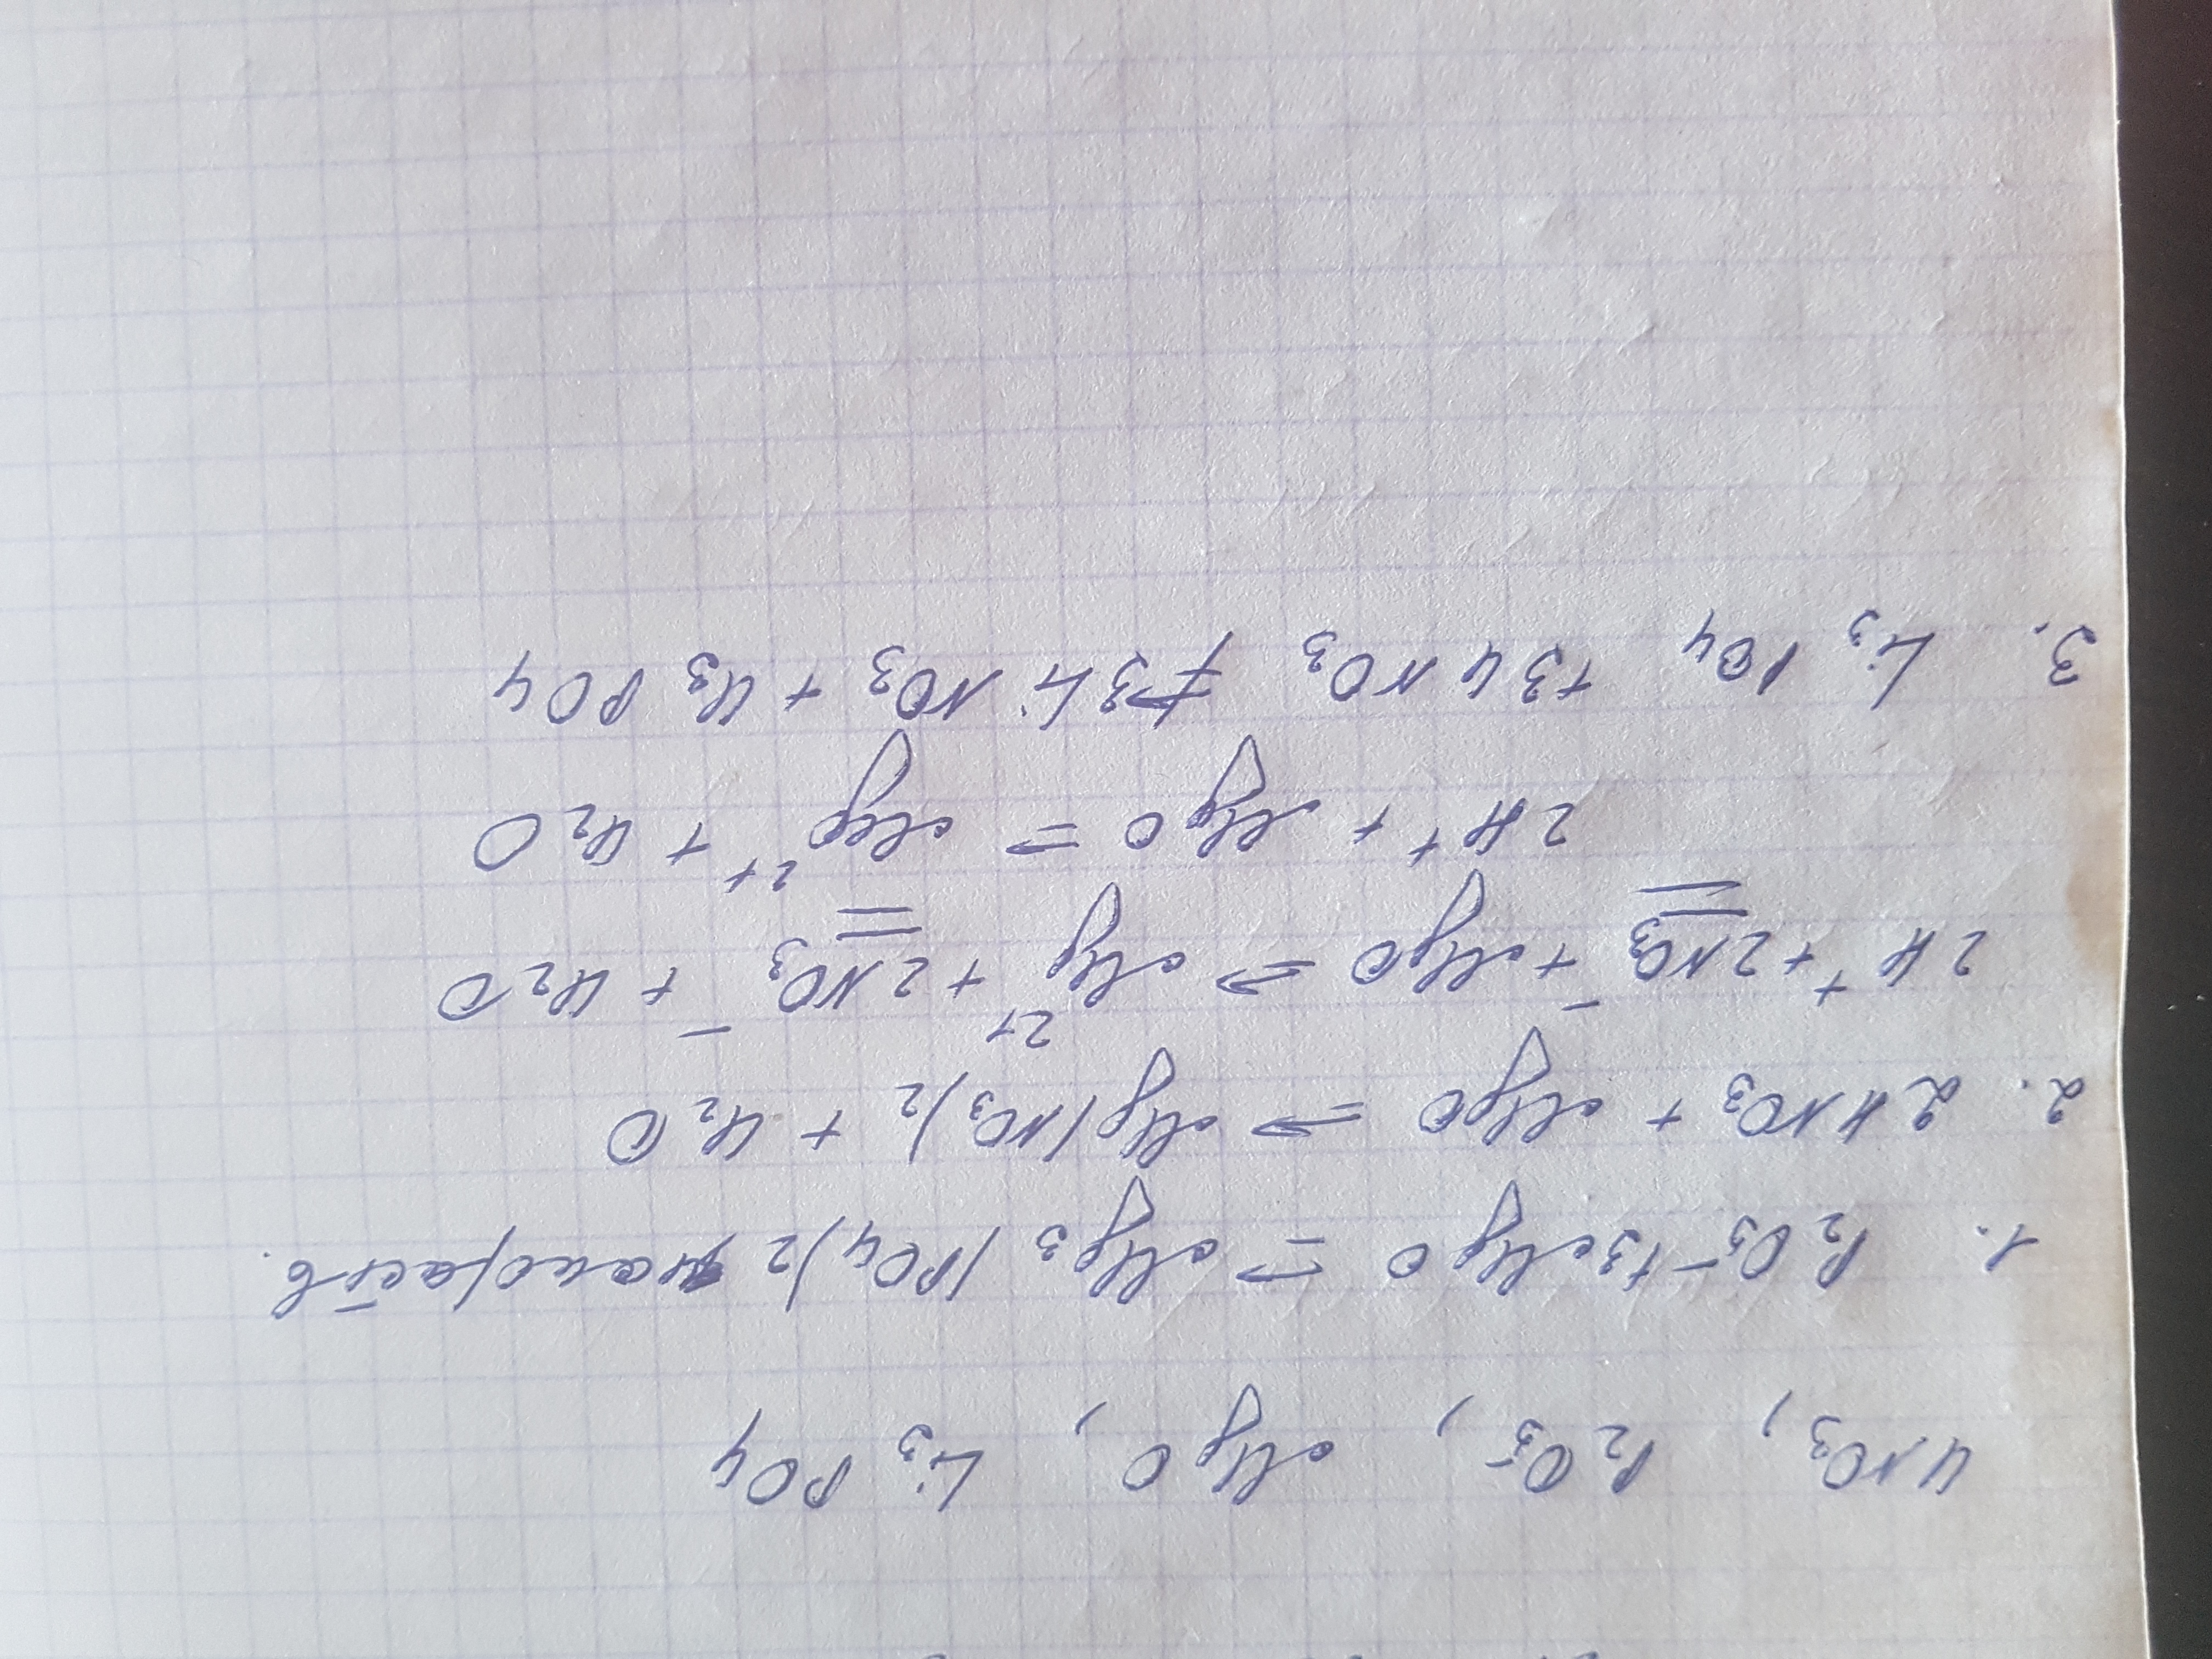 HNO₃, P₂O₅, MgO, Li₃PO₄
1. P₂O₅ + 3MgO ⇒ Mg₃(PO₄)₂ малораств.
2. 2HNO₃ + MgO ⇒ Mg(NO₃)₂ + H₂O
2H⁺ + 2NO₃⁻ + MgO ⇒ Mg²⁺ + 2NO₃⁻ + H₂O
2H⁺ + MgO ⇒ Mg²⁺ + H₂O
3. Li₃PO₄ + 3HNO₃ ⇒ 3LiNO₃ + H₃PO₄